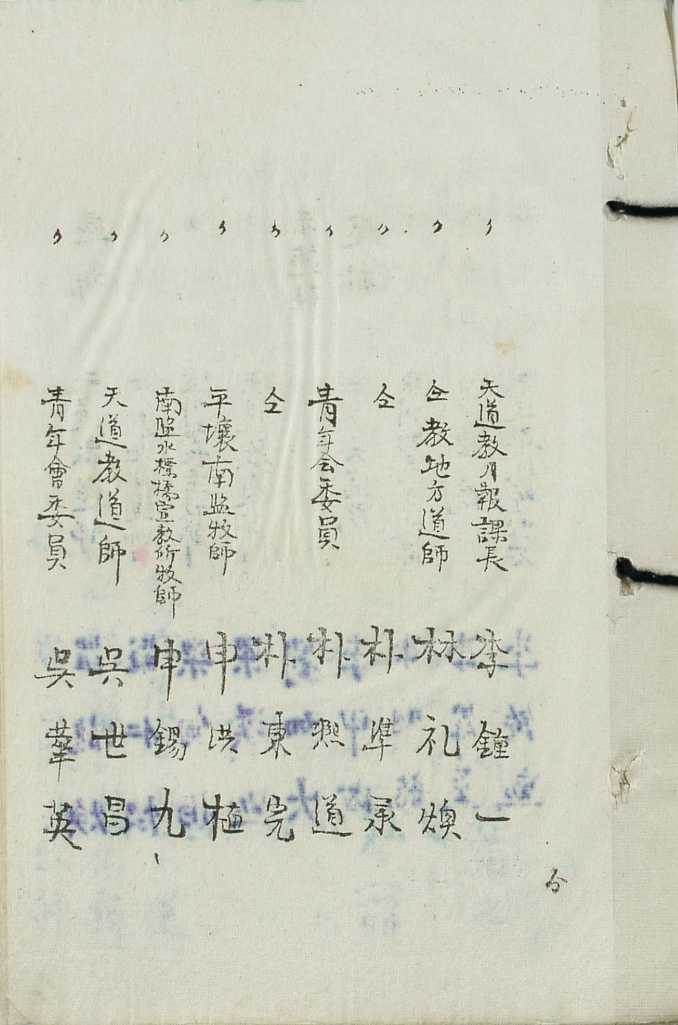 〃 天道教月報課長 李鍾一
〃 仝教地方道師 林礼煥
〃 仝 朴準承
〃 青年会委員 朴熙道
〃 仝 朴東完
〃 平壤南監牧師 申洪植
〃 南監水標橋宣教所牧師 申錫九
〃 天道教道師 吳世昌
〃 青年會委員 吳華英